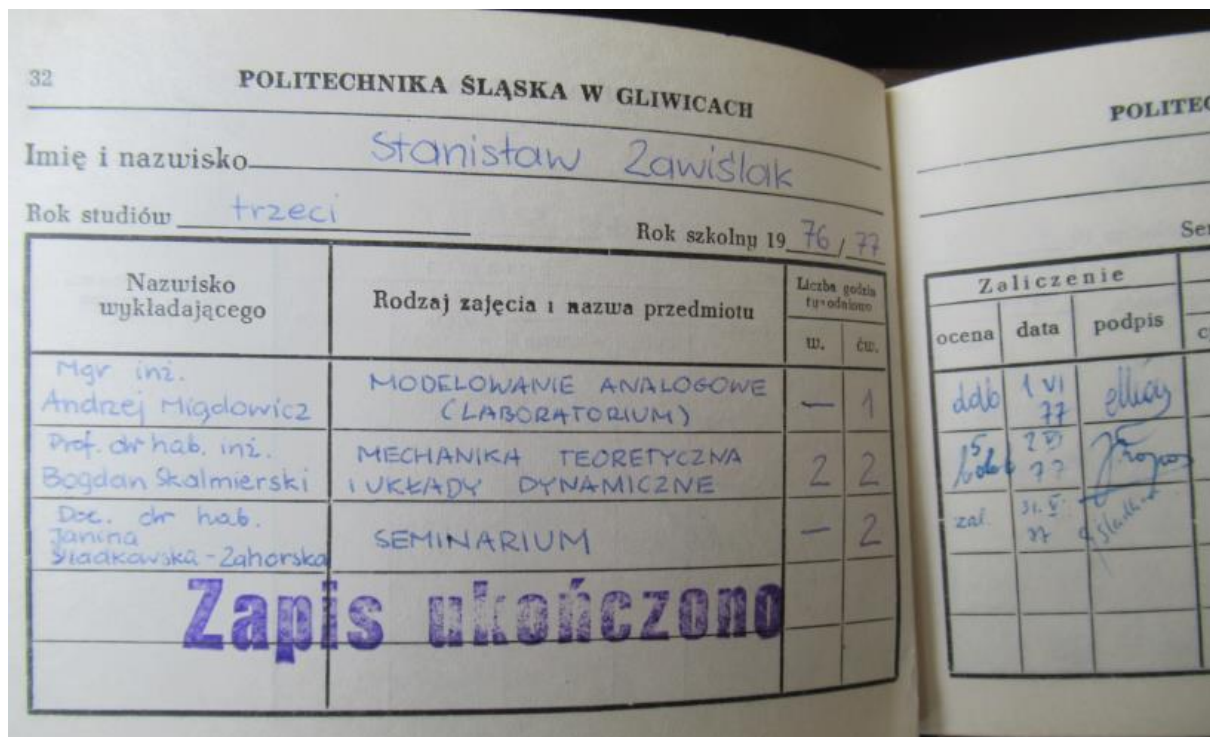 32
POLITECHNIKA ŚLĄSKA W GLIWICACH
Imię i nazwisko Stanisław Zawiślak
Rok studiów trzeci
Rok szkolny 19 76 / 77
Nazwisko
wykładającego
Rodzaj zajęcia i nazwa przedmiotu
Liczba godzin
tygodniowo
w. ćw.
Mgr inż.
Andrzej Migdowicz
MODELOWANIE ANALOGOWE
(LABORATORIUM)
— 1
Prof. dr hab. inż.
Bogdan Skalmierski
MECHANIKA TEORETYCZNA
I UKŁADY DYNAMICZNE
2 2
Doc. dr hab.
Janina
Śladkowska-Zahorska
SEMINARIUM
— 2
Zapis ukończono
POLITEC
Se
Zaliczenie
ocena data podpis
ddb 1 VI
77
5
77
zal. 31. V.
77